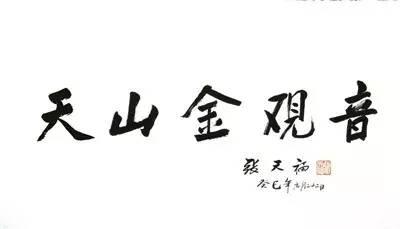 天山金观音
张天福
癸巳年